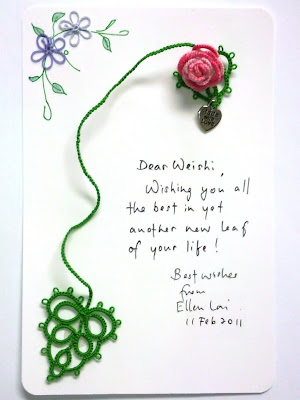 Dear Weishi,
Wishing you all
the best in yet
another new leaf
of your life!
Best wishes
from
Ellen Lai
11 Feb 2011